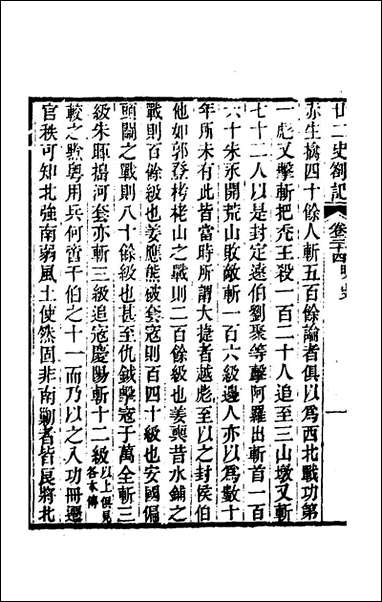 廿二史劄記 卷三十四 明史 一
亦生擒四十餘人斬五百餘論者俱以爲西北戰功第
一彪又擊斬把禿王殺一百二十人追至三山墩又斬
七十二人以是封定遠伯劉聚等擊阿羅出斬首一百
六十朱永開荒山敗敵斬一百六級邊人亦以爲數十
年所未有此皆當時所謂大捷者越彪至以之封侯伯
他如郭登栲栳山之戰則二百餘級也姜奭昔水鋪之
戰則百餘級也姜應熊破套寇則百四十級也安國偏
頭關之戰則八十餘級也甚至仇鉞擊寇于萬全斬三
級朱暉搗河套亦斬三級追寇慶陽斬十二級以上俱見各本傳
較之黔粵用兵何啻千伯之十一而乃以之入功冊遷
官秩可知北強南弱風土使然固非南勦者皆良將北